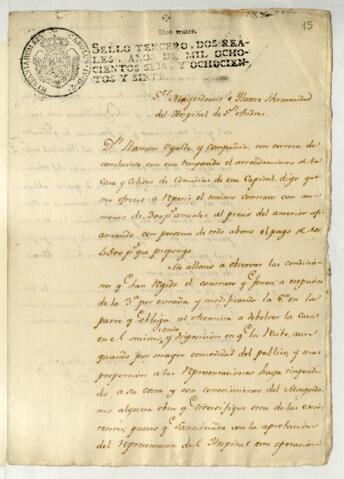 15
Dos reales.
SELLO TERCERO, DOS REA-
LES, AÑOS DE MIL OCHO-
CIENTOS SEIS, Y OCHOCIEN-
TOS Y SIETE.
S.res Mayordomo e Ilustre Hermandad
del Hospital de S.n Andres.
D.n Ramon y Compañia, con certeza de
concluirse con esa temporada el arrendamiento de la
Casa y Coliseo de Comedias de esta Capital, digo que
me ofresco a el mismo contrato con au-
mento de 300 p.s anuales al precio del anterior afi-
anzando con persona de todo abono el pago de los
p.s que propongo.
Me allano a observar las condicio-
nes q.e han regido el contrato a exepcion
de la 3.a y modificando la 6.a en la
parte q.e obliga al a debolver la casa
en el mismo, y disposicion en q.e la Recibe, aun
quando por mayor comodidad del publico, y mas
proporcion a las Representaciones haya impendi-
do a su costa y con conocimiento del Mayordo-
mo alguna obra q.e diversifique
pues q.e sancionada con la aprobacion
del Representante del Hospital esta operacion